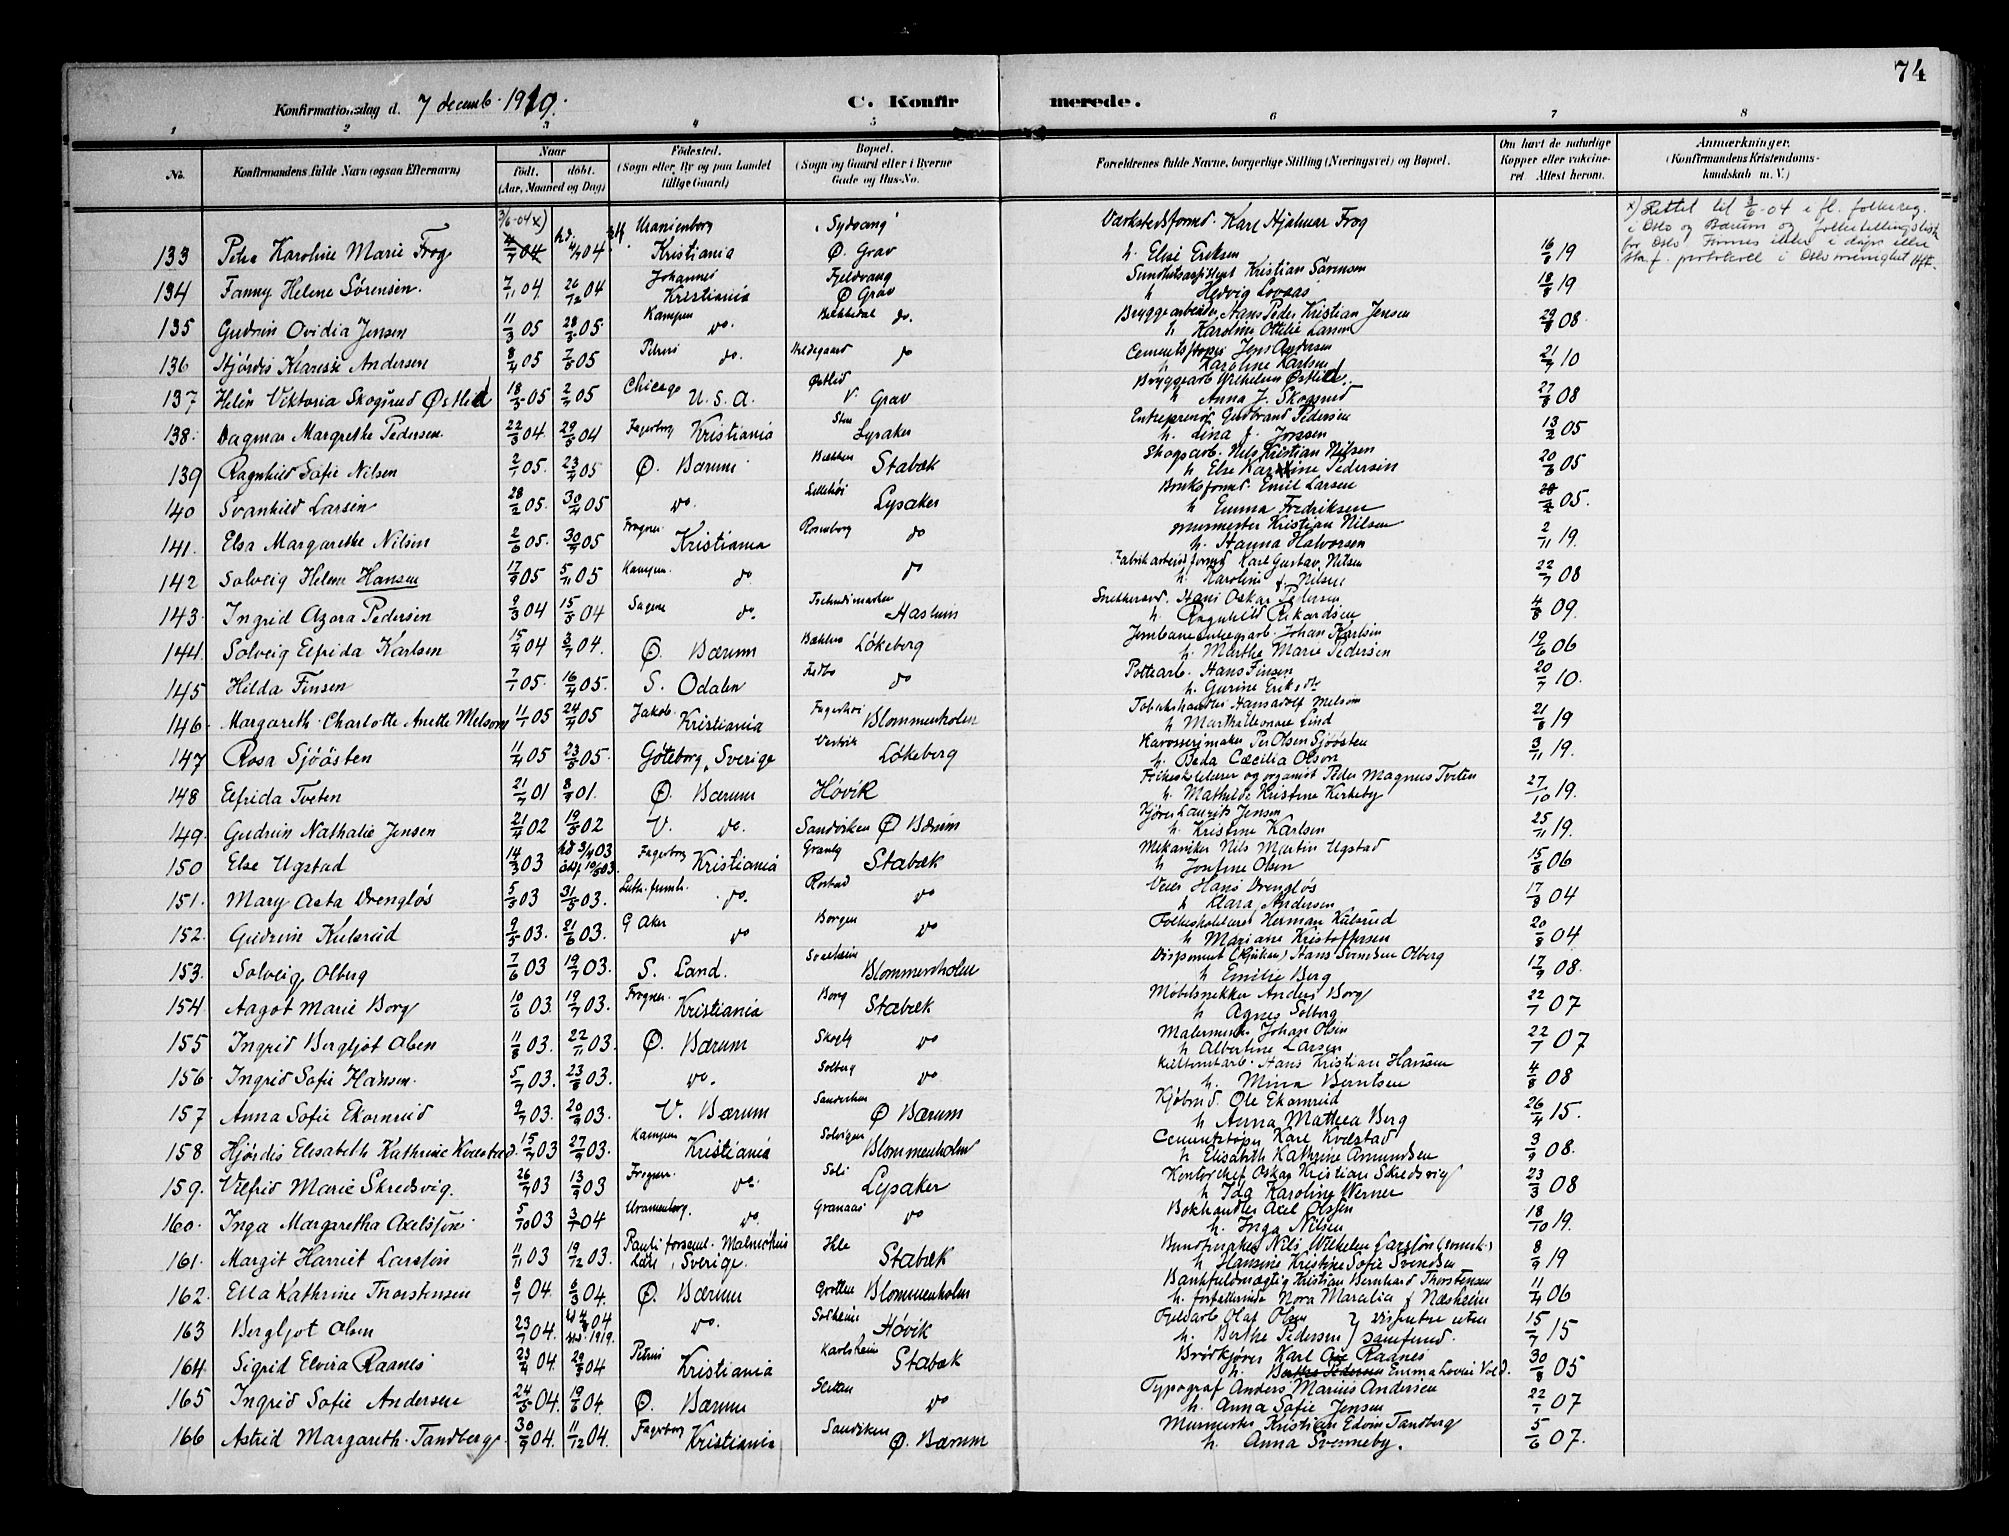 74
Konfirmationsdag d. 7 decemb. 1919.
C. Konfirmerede.
1 2 3 4 5 6 7 8
No.
Konfirmandens fulde Navn (ogsaa Efternavn)
Naar
født. døbt.
(Aar, Maaned og Dag)
Fødested.
(Sogn eller By og paa Landet
tillige Gaard)
Bopæl.
(Sogn og Gaard eller i Byerne
Gade og Hus-No.
Forældrenes fulde Navne, borgerlige Stilling (Næringsvei) og Bopæl.
Om havt de naturlige
Kopper eller vakcine-
ret Attest herom.
Anmærkninger.
(Konfirmandens Kristendoms-
kundskab m. V.)
x) Rettet til 3/6-04 e fl. folkereg.
i Oslo og Bærum og folketellingslist
for Oslo. Finnes ikke i døpe eller
3/6-04 x) Uranienborg Sydvang Værkstedsformd. Karl Hjalmar Frog
133 Petra Karoline Marie Frog 4/7 04 4/7 04 Kristiania Ø. Grav h. Elise Eriksen 16/6 19
Johannes Fjeldvang Sundhetsassistent Kristian Sørensen
134 Fanny Helene Sørensen. 7/11 04. 26/12 04 Kristiania Ø Grav h Hedvig Lovaas 18/8 19
Kampen Bækkedal Bryggearbeider Hans Peder Kristian Jensen
135 Gudrun Ovidia Jensen 11/3 05 28/5 05. do. do. h Karoline Ottilie Larsen 29/8 08.
Petrus Hildegaard Cementstøper Jens Andersen
136 Hjørdis Klarisse Andersen 8/4 05 7/5 05 do. do h Karoline Karlsen 21/7 10
Chicago Østlid Bryggearb Wilhelm Østlid
137 Helen Viktoria Skogsrud Østlid 18/5 05 2/7 05 U.S.A. V. Grav h Anna J. Skogsrud 27/8 08
Entreprenør Gudbrand Pedersen
138. Dagmar Margrethe Pedersen. 22/3 04 29/5 04 Fagerborg Kristiania Lysaker h. Lina f. Jonsen 13/2 05
Bækken Skogsarb. Nils Kristian Nilsen
139 Ragnhild Sofie Nilsen 2/1 05. 23/4 05 Ø. Bærum Stabæk h Else Karoline Pedersen 20/6 05
Lillehøi Bruksformd. Emil Larsen
140 Svanhild Larsen 28/2 05. 30/4 05 do. Lysaker h Emma Fredriksen 05.
Frogner Rosenborg Murmester Kristian Nilsen
141. Elsa Margarethe Nilsen 2/6 05. 30/7 05 Kristiania do h. Hanna Halvorsen 2/11 19.
Kampen. Fabrikarbeidsformd Karl Gustav Nilsen
142 Solveig Helene Hansen 17/9 05 5/11 05 do. do h. Karoline f. Nilsen 22/7 08
Sagene Tschudimarken Snekkersvd. Hans Oskar Pedersen
143. Ingrid Azora Pedersen 9/3 04 15/5 04 do. Haslum h. Ragnhild Rikardsen 4/8 09.
Bækken Jernbaneanlægsarb. Johan Karlsen
144. Solveig Elfrida Karlsen 15/4 04 3/7 04. Ø. Bærum Løkeberg h. Marthe Marie Pedersen 19/6 06
Pottearb. Hans Finsen
145 Hilda Finsen 7/1 05. 16/4 05. S. Odalen do h. Gurine Eriksdtr 20/7 10.
Jakob. Fagerhøi Tobakshandler Hans Adolf Melsom
146. Margareth Charlotte Anette Melsom 11/1 05 24/9 05 Kristiania Blommenholm h Martha Eleonore Lind 21/8 19
Vestvik Karosserimaker Per Olsen Sjøøsten
147 Rosa Sjøøsten 11/4 05 23/5 05. Göteborg, Sverige Løkeberg h. Beda Cæcilia Olson 3/11 19.
Folkeskolelærer og organist Peder Magnus Tveten
148 Elfrida Tveten 21/7 01 8/9 01. Ø. Bærum Høvik h. Mathilde Kristine Kirkeby 27/10 19.
Kjører Laurits Jensen
149. Gudrun Nathalie Jensen 21/4 02 19/5 02 V. do. Sandviken Ø Bærum h. Kristine Karlsen 25/11 19.
Fagerborg Granly Mekaniker Nils Martin Ugstad
150 Else Ugstad 14/3 03 hd 3/4 03 døbt 10/5 03. Kristiania Stabæk h Josefine Olsen 15/8 06
Luth. frimh. Rostad Veier Hans Drengløs
151. Mary Asta Drengløs 5/3 03 31/5 03. do. do h Klara Andersen 17/8 04
G Aker Borgen Folkeskolelærer Herman Kulsrud
152. Gudrun Kulsrud 9/5 03. 21/6 03. do do h Mariane Kristoffersen 20/8 04
Solheim Disponent (Rjukan) Hans Svendsen Olberg
153. Solveig Olberg 7/6 03 19/7 03. S. Land. Blommenholm h Emilie Berg 17/9 08.
Frogner. Borg Møbelsnekker Anders Borg
154 Aagot Marie Borg 10/6 03. 19/7 03. Kristiania Stabæk h Agnes Solberg 22/7 07
Skogly Malermester Johan Olsen
155 Ingrid Bergljot Olsen 11/8 03. 22/11 03. Ø. Bærum do h Albertine Larsen 22/7 07
Solberg Hans Kristian Hansen
156. Ingrid Sofie Hansen. 5/7 03. 23/8 03. do. do h. Mina Berntsen 4/8 08
Kjøbmd. Ole Ekornrud
157 Anna Sofie Ekornrud 9/7 03. 20/9 03. V. Bærum Ø Bærum h Anna Mathea Berg 26/4 15.
Kampen Solvigen Cementstøper Karl Kvæstad
158 Hjørdis Elisabeth Kathrine Kvæstad. 15/7 03 27/9 03. Kristiania Blommenholm h Elisabeth Kathrine Amundsen 3/9 08.
Frogner. Soli Kontorchef Oskar Kristian Skredsvig
159. Vilfrid Marie Skredsvig. 26/7 03 13/9 03 do. Lysaker h Ida Karoline Werner 23/3 08
Uranienborg. Granaas Bokhandler Axel Olsson
160. Inga Margaretha Axelssøn 5/10 03 3/1 04 do. do h. Inga Nilsen 18/10 19.
Pauli forsaml. Malmøhus Buntmaker Nils Wilhelm Larssøn
161. Margit Harriet Larssøn 11/11 03 19/12 03. län, Sverige. Stabæk h Hansine Kristine Sofie Svendsen 8/9 19
Grotten Bankfuldmægtig Kristian Bernhard Thorstensen
162. Ella Kathrine Thorstensen 8/1 04. 6/3 04. Ø. Bærum Blommenholm h. forfatterinde Nora Maralia f. Næsheim 11/4 06
Solheim Fjeldarb Olaf Olsen } dissentere uten
163 Bergljot Olsen 23/7 04. 1919. do. Høvik h. Berthe Pedersen } samfund. 15/7 15
Petrus Karlsheim Brødkjører Karl Raanes
164. Sigrid Elvira Raanes 23/4 04. 29/5 04 Kristiania Stabæk h. Berthe Pedersen Emma Lovise Vold. 30/8 05
Sletten Typograf Anders Marius Andersen
165 Ingrid Sofie Andersen 24/5 04. 19/6 04. Ø. Bærum do h. Anna Sofie Jensen 22/1 07
Fagerborg Sandviken Murmester Kristian Edvin Tandberg
166 Astrid Margareth Tandberg. 30/9 04. 11/12 04. Kristiania Ø. Bærum h. Anna Svenneby. 5/6 07.